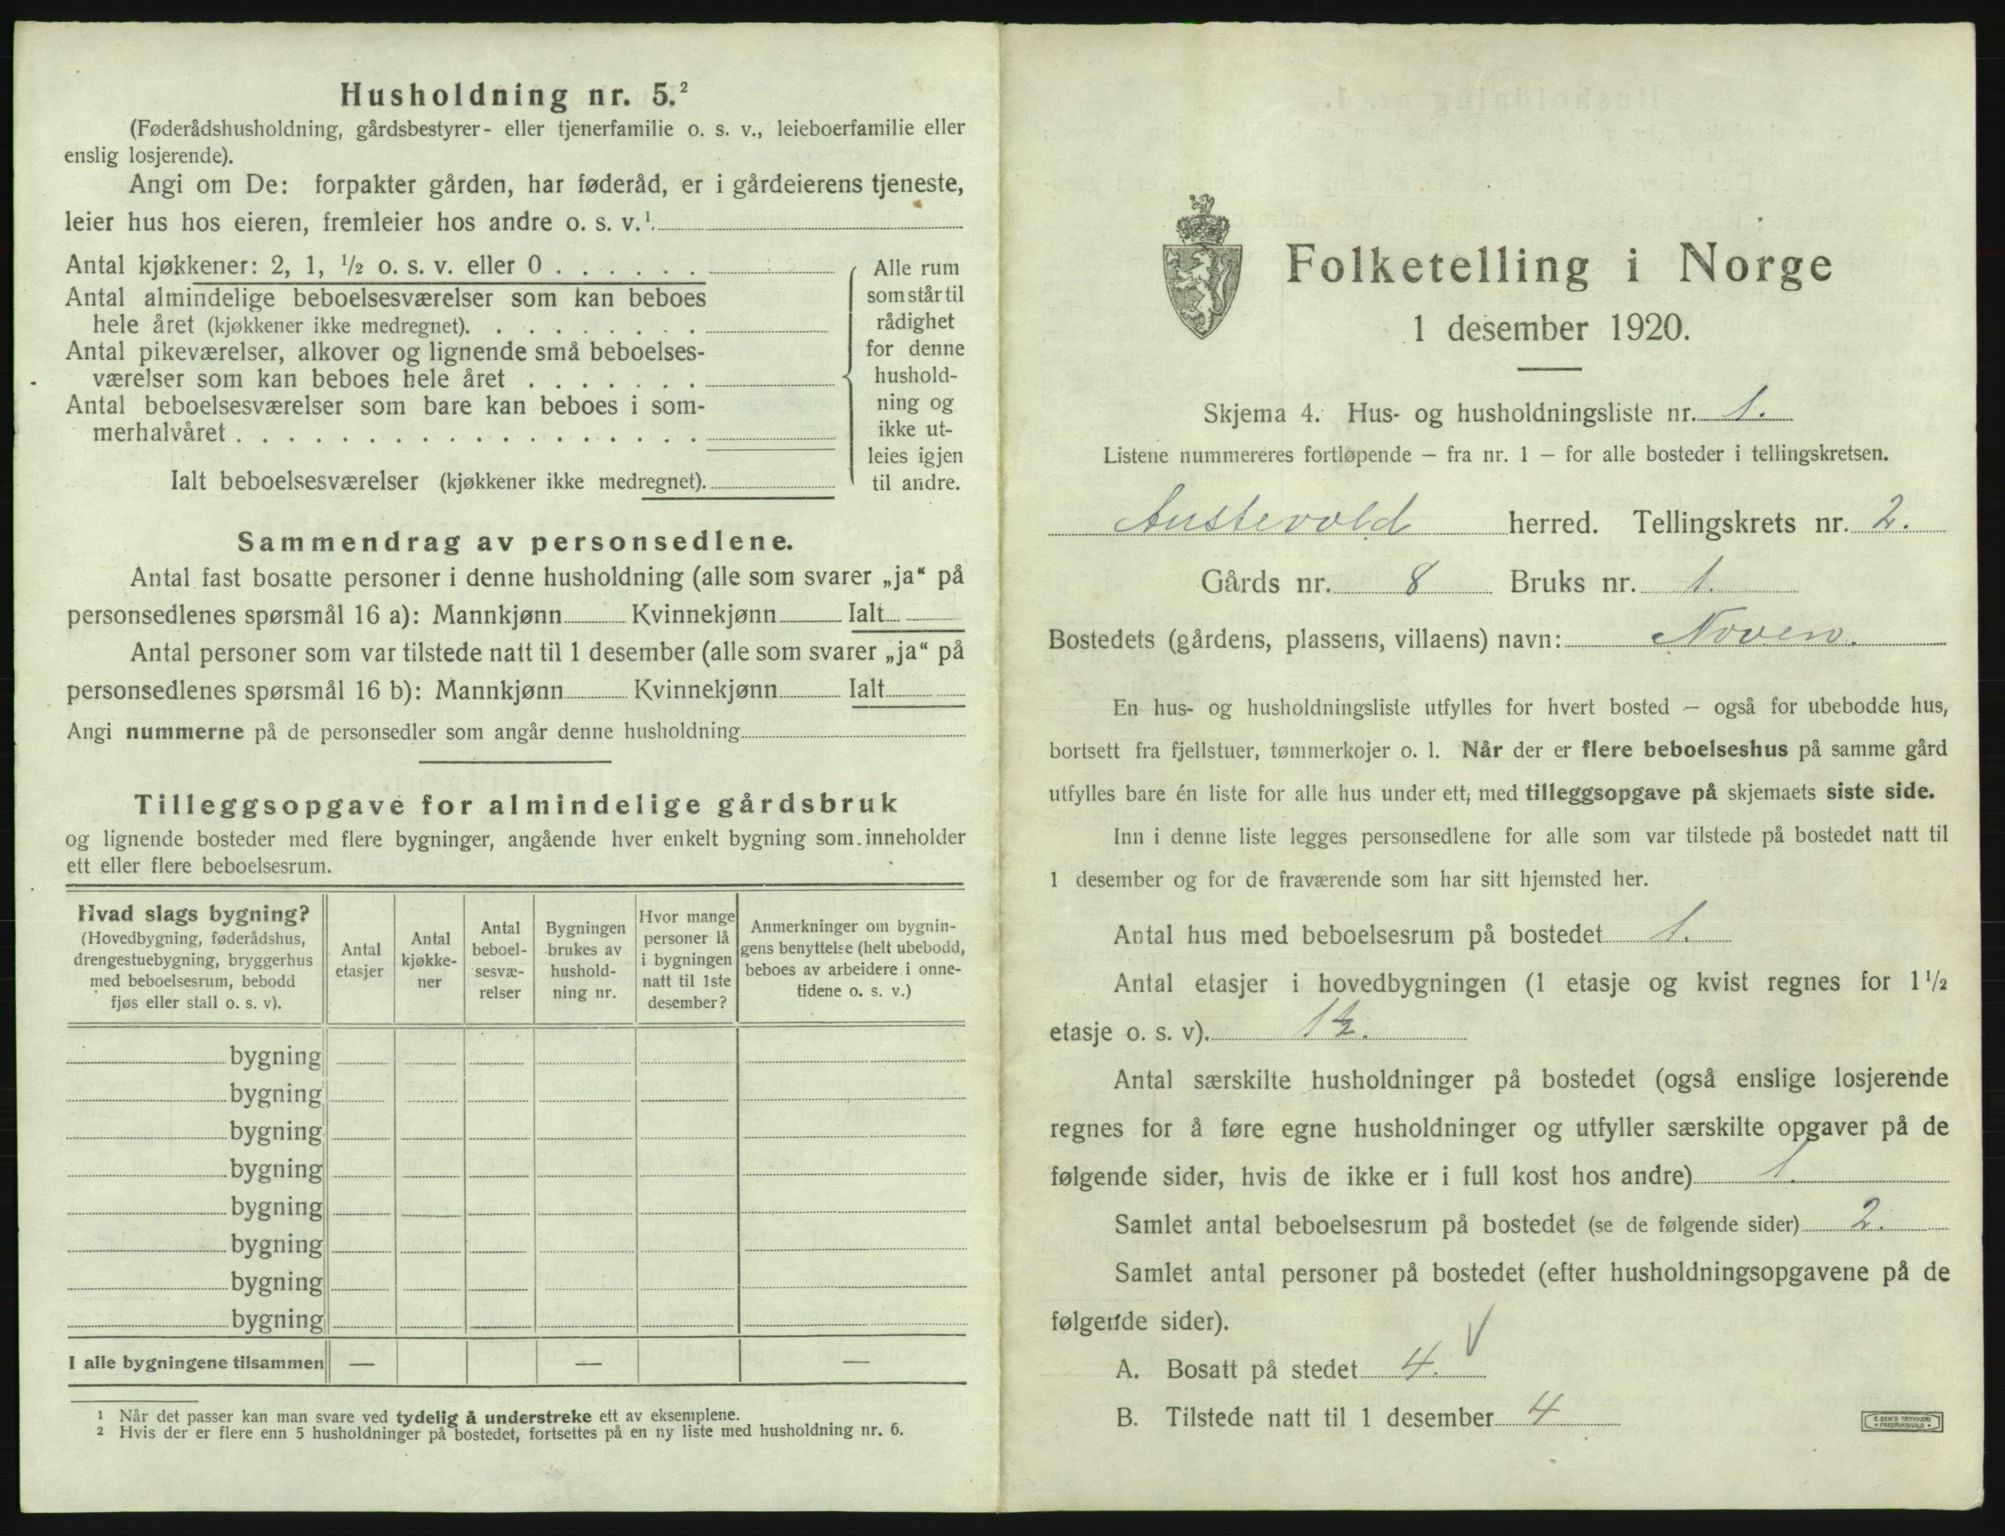 Husholdning nr. 5.²
(Føderådshusholdning, gårdsbestyrer- eller tjenerfamilie o. s. v., leieboerfamilie eller
enslig losjerende).
Angi om De: forpakter gården, har føderåd, er i gårdeierens tjeneste,
leier hus hos eieren, fremleier hos andre o. s. v.¹
Antal kjøkkener: 2, 1, ½ o. s. v. eller 0 . . . . . .
Antal almindelige beboelsesværelser som kan beboes
hele året (kjøkkener ikke medregnet). . . . . . . . .
Antal pikeværelser, alkover og lignende små beboelses-
værelser som kan beboes hele året . . . . . . .
Antal beboelsesværelser som bare kan beboes i som-
merhalvåret . . . . . . . . . . . . . . . . . .
Ialt beboelsesværelser (kjøkkener ikke medregnet).
Alle rum
som står til
rådighet
for denne
hushold-
ning og
ikke ut-
leies igjen
til andre.
Sammendrag av personsedlene.
Antal fast bosatte personer i denne husholdning (alle som svarer „ja“ på
personsedlenes spørsmål 16 a): Mannkjønn Kvinnekjønn Ialt
Antal personer som var tilstede natt til 1 desember (alle som svarer „ja“ på
personsedlenes spørsmål 16 b): Mannkjønn Kvinnekjønn Ialt
Angi nummerne på de personsedler som angår denne husholdning
Tilleggsopgave for almindelige gårdsbruk
og lignende bosteder med flere bygninger, angående hver enkelt bygning som inneholder
ett eller flere beboelsesrum.
Hvad slags bygning?
(Hovedbygning, føderådshus,
drengestuebygning, bryggerhus
med beboelsesrum, bebodd
fjøs eller stall o. s. v).
Antal
etasjer
Antal
kjøkke-
ner
Antal
beboel-
sesvæ-
relser
Bygningen
brukes av
hushold-
ning nr.
Hvor mange
personer lå
i bygningen
natt til 1ste
desember?
Anmerkninger om bygnin-
gens benyttelse (helt ubebodd,
beboes av arbeidere i onne-
tidene o. s. v.)
bygning
bygning
bygning
bygning
bygning
bygning
bygning
bygning
I alle bygningene tilsammen — — —
¹ Når det passer kan man svare ved tydelig å understreke ett av eksemplene.
² Hvis der er flere enn 5 husholdninger på bostedet, fortsettes på en ny liste med husholdning nr. 6.
Folketelling i Norge
1 desember 1920.
Skjema 4. Hus- og husholdningsliste nr. 1.
Listene nummereres fortløpende – fra nr. 1 – for alle bosteder i tellingskretsen.
Austevold herred. Tellingskrets nr. 2.
Gårds nr. 8 Bruks nr. 1.
Bostedets (gårdens, plassens, villaens) navn:
En hus- og husholdningsliste utfylles for hvert bosted – også for ubebodde hus,
bortsett fra fjellstuer, tømmerkojer o. l. Når der er flere beboelseshus på samme gård
utfylles bare én liste for alle hus under ett, med tilleggsopgave på skjemaets siste side.
Inn i denne liste legges personsedlene for alle som var tilstede på bostedet natt til
1 desember og for de fraværende som har sitt hjemsted her.
Antal hus med beboelsesrum på bostedet 1.
Antal etasjer i hovedbygningen (1 etasje og kvist regnes for 1½
etasje o. s. v). 1½.
Antal særskilte husholdninger på bostedet (også enslige losjerende
regnes for å føre egne husholdninger og utfyller særskilte opgaver på de
følgende sider, hvis de ikke er i full kost hos andre) 1.
Samlet antal beboelsesrum på bostedet (se de følgende sider) 2.
Samlet antal personer på bostedet (efter husholdningsopgavene på de
følgende sider).
A. Bosatt på stedet 4.
B. Tilstede natt til 1 desember 4